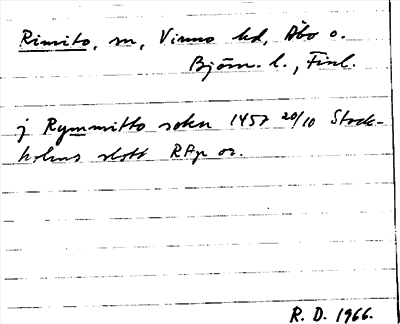 Rimito, sn, Virmo hd, Åbo o.
Björn. l., Finl.
j Rymmitto soken 1457 20/10 Stock-
holms slott RAp or.
R. D. 1966.